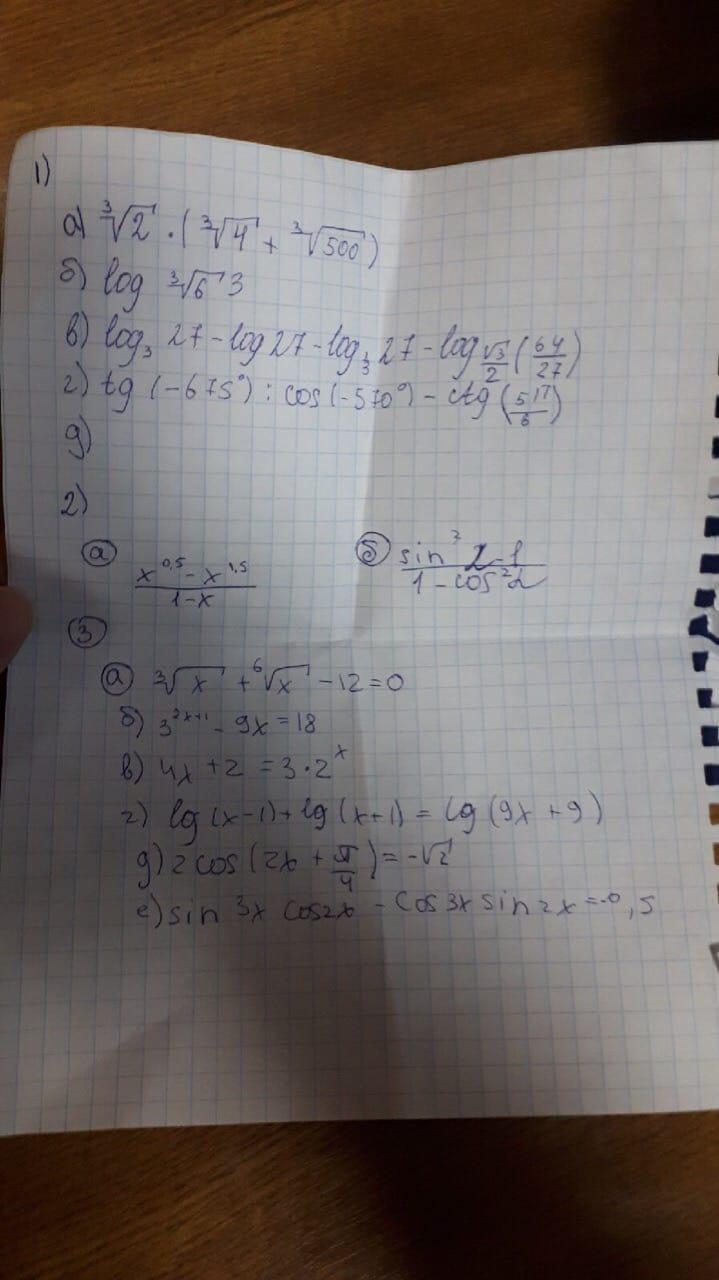 1)
а) ³√2 · (³√4 + ³√500)
б) log ³√6 3
в) log₃ 27 - log 27 - log₃ 27 - log √3/2 (64/27)
г) tg (-675°) : cos (-570°) - ctg (5π/6)
д)
2)
а) (x^0,5 - x^1,5)/(1-x) б) (sin² α-1)/(1-cos²α)
3
а) ³√x + ⁶√x - 12 = 0
б) 3^2x+1 - 9x = 18
в) 4x + 2 = 3·2^x
г) lg (x-1) + lg (x+1) = lg (9x + 9)
д) 2 cos (2x + π/4) = -√2
е) sin 3x cos2x - cos 3x sin 2x = -0,5